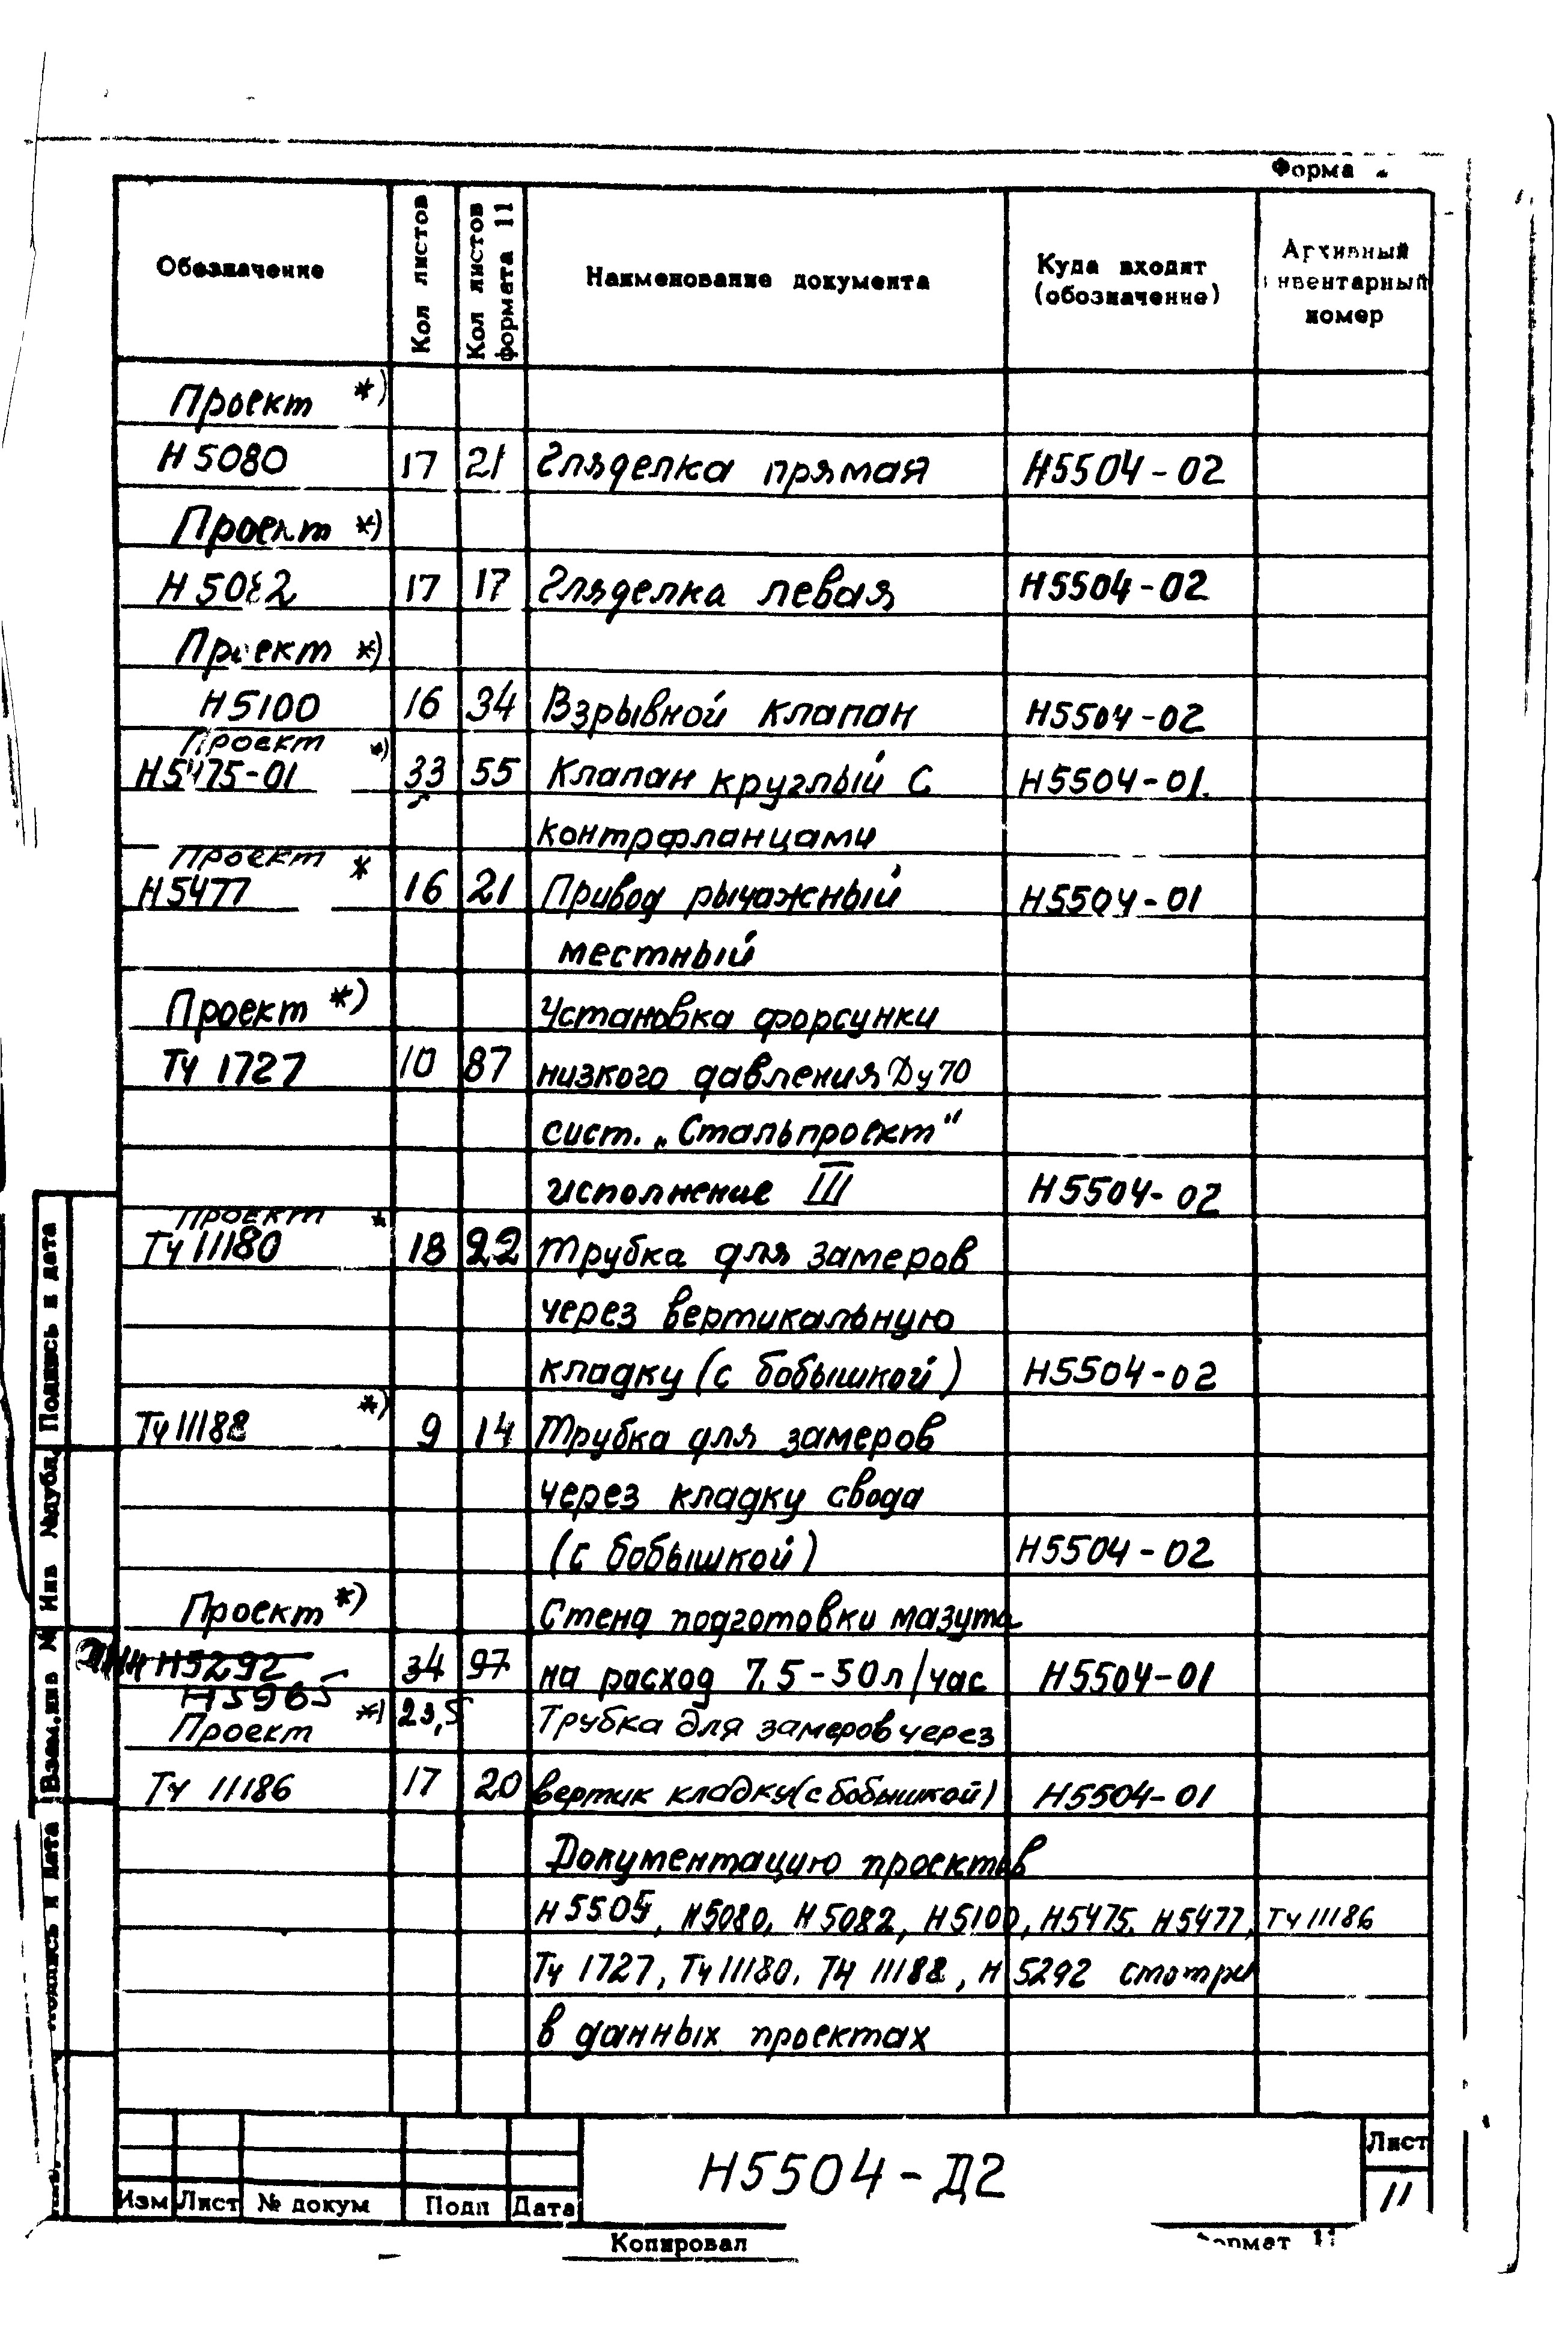 Форма
Обозначение
Кол листов
Кол листов
формата 11
Наименование документа
Куда входит
(обозначение)
Архивный
инвентарный
номер
Проект *)
Н5080 17 21 Гляделка прямая Н5504-02
Проект *)
Н5082 17 17 Гляделка левая Н5504-02
Проект *)
Н5100 16 34 Взрывной клапан Н5504-02
Проект *)
Н5475-01 33 55 Клапан круглый с Н5504-01
контрфланцами
Проект *
Н5477 16 21 Привод рычажный Н5504-01
местный
Проект *) Установка форсунки
ТЧ 1727 10 87 низкого давления Ду70
сист. „Стальпроект"
исполнение III Н5504-02
Проект *
ТЧ 11180 18 22 Трубка для замеров
через вертикальную
кладку (с бобышкой) Н5504-02
*)
ТЧ 11188 9 14 Трубка для замеров
через кладку свода
(с бобышкой) Н5504-02
Проект *) Стенд подготовки мазута
Н5292 34 97 на расход 7,5-50л/час Н5504-01
Н5965
Проект *) 23,5 Трубка для замеров через
ТЧ 11186 17 20 вертик кладку (с бобышкой) Н5504-01
Документацию проектов
Н5505, Н5080, Н5082, Н5100, Н5475, Н5477, ТЧ 11186
ТЧ 1727, ТЧ 11180, ТЧ 11188, Н5292 смотри
в данных проектах
Подпись и дата
Инв №дубл
Взам.инв №
Подпись и дата
Изм Лист № докум Подп Дата
Н5504-Д2
Лист
11
Копировал
Формат 11